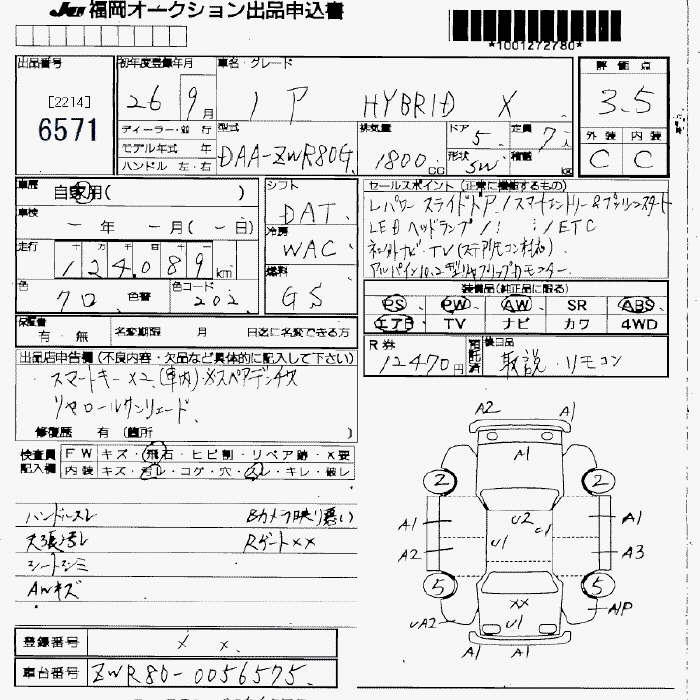 JU 福岡オークション出品申込書
*1001272780*
出品番号
[2214]
6571
初年度登録年月
26 9月
車名・グレード
HYBRID X
評価点
3.5
外装 内装
C C
ディーラー・並行
モデル年式 年
ハンドル 左・右
型式
DAA-ZWR80G
排気量
1800CC
ドア
5
形状
SW
定員
7人
積載
kg
車歴
自家用( )
車検
ー 年 ー 月(ー日)
走行
十 万 千 百 十 一
124,089km
色
クロ 色替
色コード
202
シフト
DAT
冷房
WAC
燃料
GS
セールスポイント(正常に機能するもの)
L.パワースライドドア/スマートエントリー&プッシュスタート
LEDヘッドランプ/ /ETC
TV(ステアリモコン対応)
アルパイン10.2型リヤフリップダウンモニター
装備品(純正品に限る)
PS PW AW SR ABS
エアB TV ナビ カワ 4WD
保証書
有・無
名変期限 月 日迄に名変できる方
R券
12470円
預託済
後日品
取説・リモコン
出品店申告欄(不良内容・欠品など具体的に記入して下さい)
スマートキー×2(車内)※スペアデンチナシ
リヤロールサンシェード
修復歴 有(箇所 )
検査員記入欄
FW キズ・飛石・ヒビ割・リペア跡・X要
内装 キズ・汚レ・コゲ・穴・スレ・キレ・破レ
ハンドルスレ Bカメラ映り悪い
天張汚レ Rゲート××
シートシミ
AWキズ
A2 A1
A1
2 2
A1 U2 U1 A1
A2 U1 A3
5 5
XX
UA2 U1 A1P
A1 A1
登録番号
× ×
車台番号
ZWR80-0056575